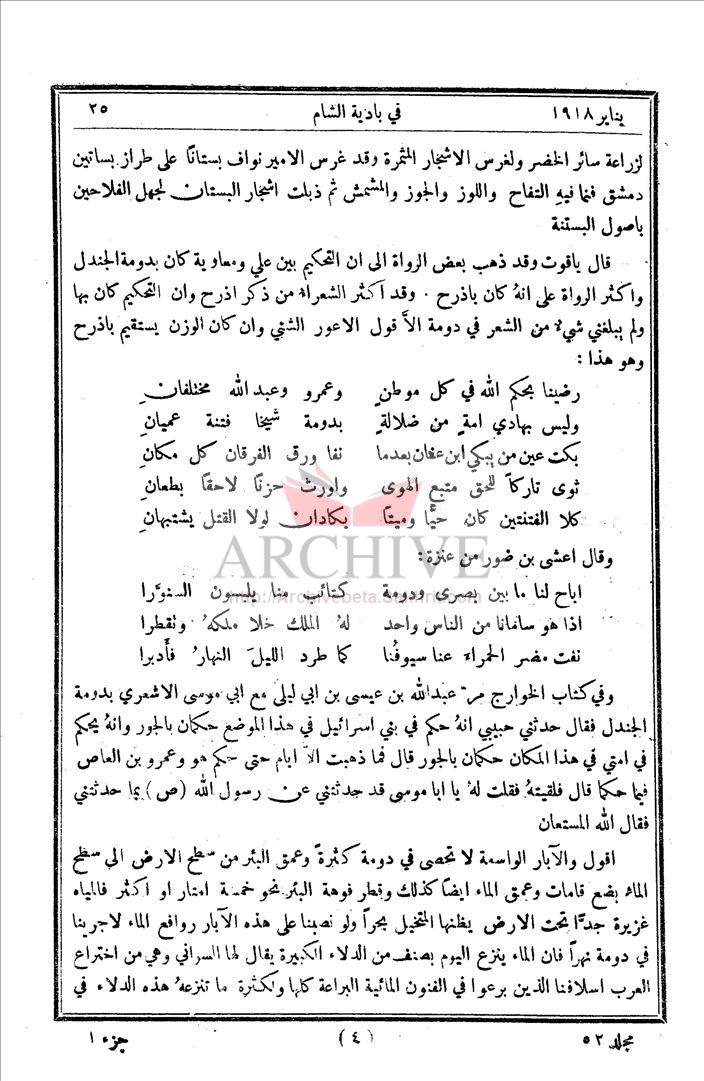 يناير ١٩١٨ في بادية الشام ٢٥
لزراعة سائر الخضر ولغرس الاشجار المثمرة وقد غرس الامير نواف بستانًا على طراز بساتين
دمشق فنما فيهِ التفاح واللوز والجوز والمشمش ثم ذبلت اشجار البستان لجهل الفلاحين
باصول البستنة
قال ياقوت وقد ذهب بعض الرواة الى ان التحكيم بين علي ومعاوية كان بدومة الجندل
واكثر الرواة على انهُ كان باذرح . وقد اكثر الشعراء من ذكر اذرح وان التحكيم كان بها
ولم يبلغني شيءٌ من الشعر في دومة الاَّ قول الاعور الشني وان كان الوزن يستقيم باذرح
وهو هذا :
رضينا بحكم الله في كل موطنٍ وعمرو وعبد الله مختلفانِ
وليس بهادي امةٍ من ضلالةٍ بدومة شيخا فتنة عميانِ
بكت عين من يبكي ابن عفان بعدما نفا ورق الفرقان كل مكانِ
ثوى تاركاً للحق متبع الهوى واورث حزنًا لاحقًا بطعانِ
كلا الفتنتين كان حيًّا وميتًا يكادان لولا القتل يشتبهانِ
وقال اعشى بن ضور من عنزة :
اباح لنا ما بين بصرى ودومة كتائب منا يلبسون السنوَّرا
اذا هو سامانا من الناس واحد لهُ الملك خلا ملكهُ وتقطرا
نفت مضر الحمراءَ عنا سيوفُنا كما طرد الليلَ النهارُ فأَدبرا
وفي كتاب الخوارج مرَّ عبد الله بن عيسى بن ابي ليلى مع ابي موسى الاشعري بدومة
الجندل فقال حدثني حبيبي انهُ حكم في بني اسرائيل في هذا الموضع حكمان بالجور وانهُ يحكم
في امتي في هذا المكان حكمان بالجور قال فما ذهبت الاَّ ايام حتى حكم هو وعمرو بن العاص
فيما حكما قال فلقيتهُ فقلت لهُ يا ابا موسى قد حدثتني عن رسول الله (ص) بما حدثتني
فقال الله المستعان
اقول والآبار الواسعة لا تحصى في دومة كثرةً وعمق البئر من سطح الارض الى سطح
الماء بضع قامات وعمق الماء ايضًا كذلك وقطر فوهة البئر نحو خمسة امتار او اكثر فالمياه
غزيرة جدًّا تحت الارض يظنها المتخيل بحراً ولو نصبنا على هذه الآبار روافع الماء لاجرينا
في دومة نهراً فان الماء ينزع اليوم بصنف من الدلاء الكبيرة يقال لها السراني وهي من اختراع
العرب اسلافنا الذين برعوا في الفنون المائية البراعة كلها ولكثرة ما تنزعهُ هذه الدلاء في
ARCHIVE
http://Archivebeta.Sakhrit.com
جزء ١ (٤) مجلد ٥٢